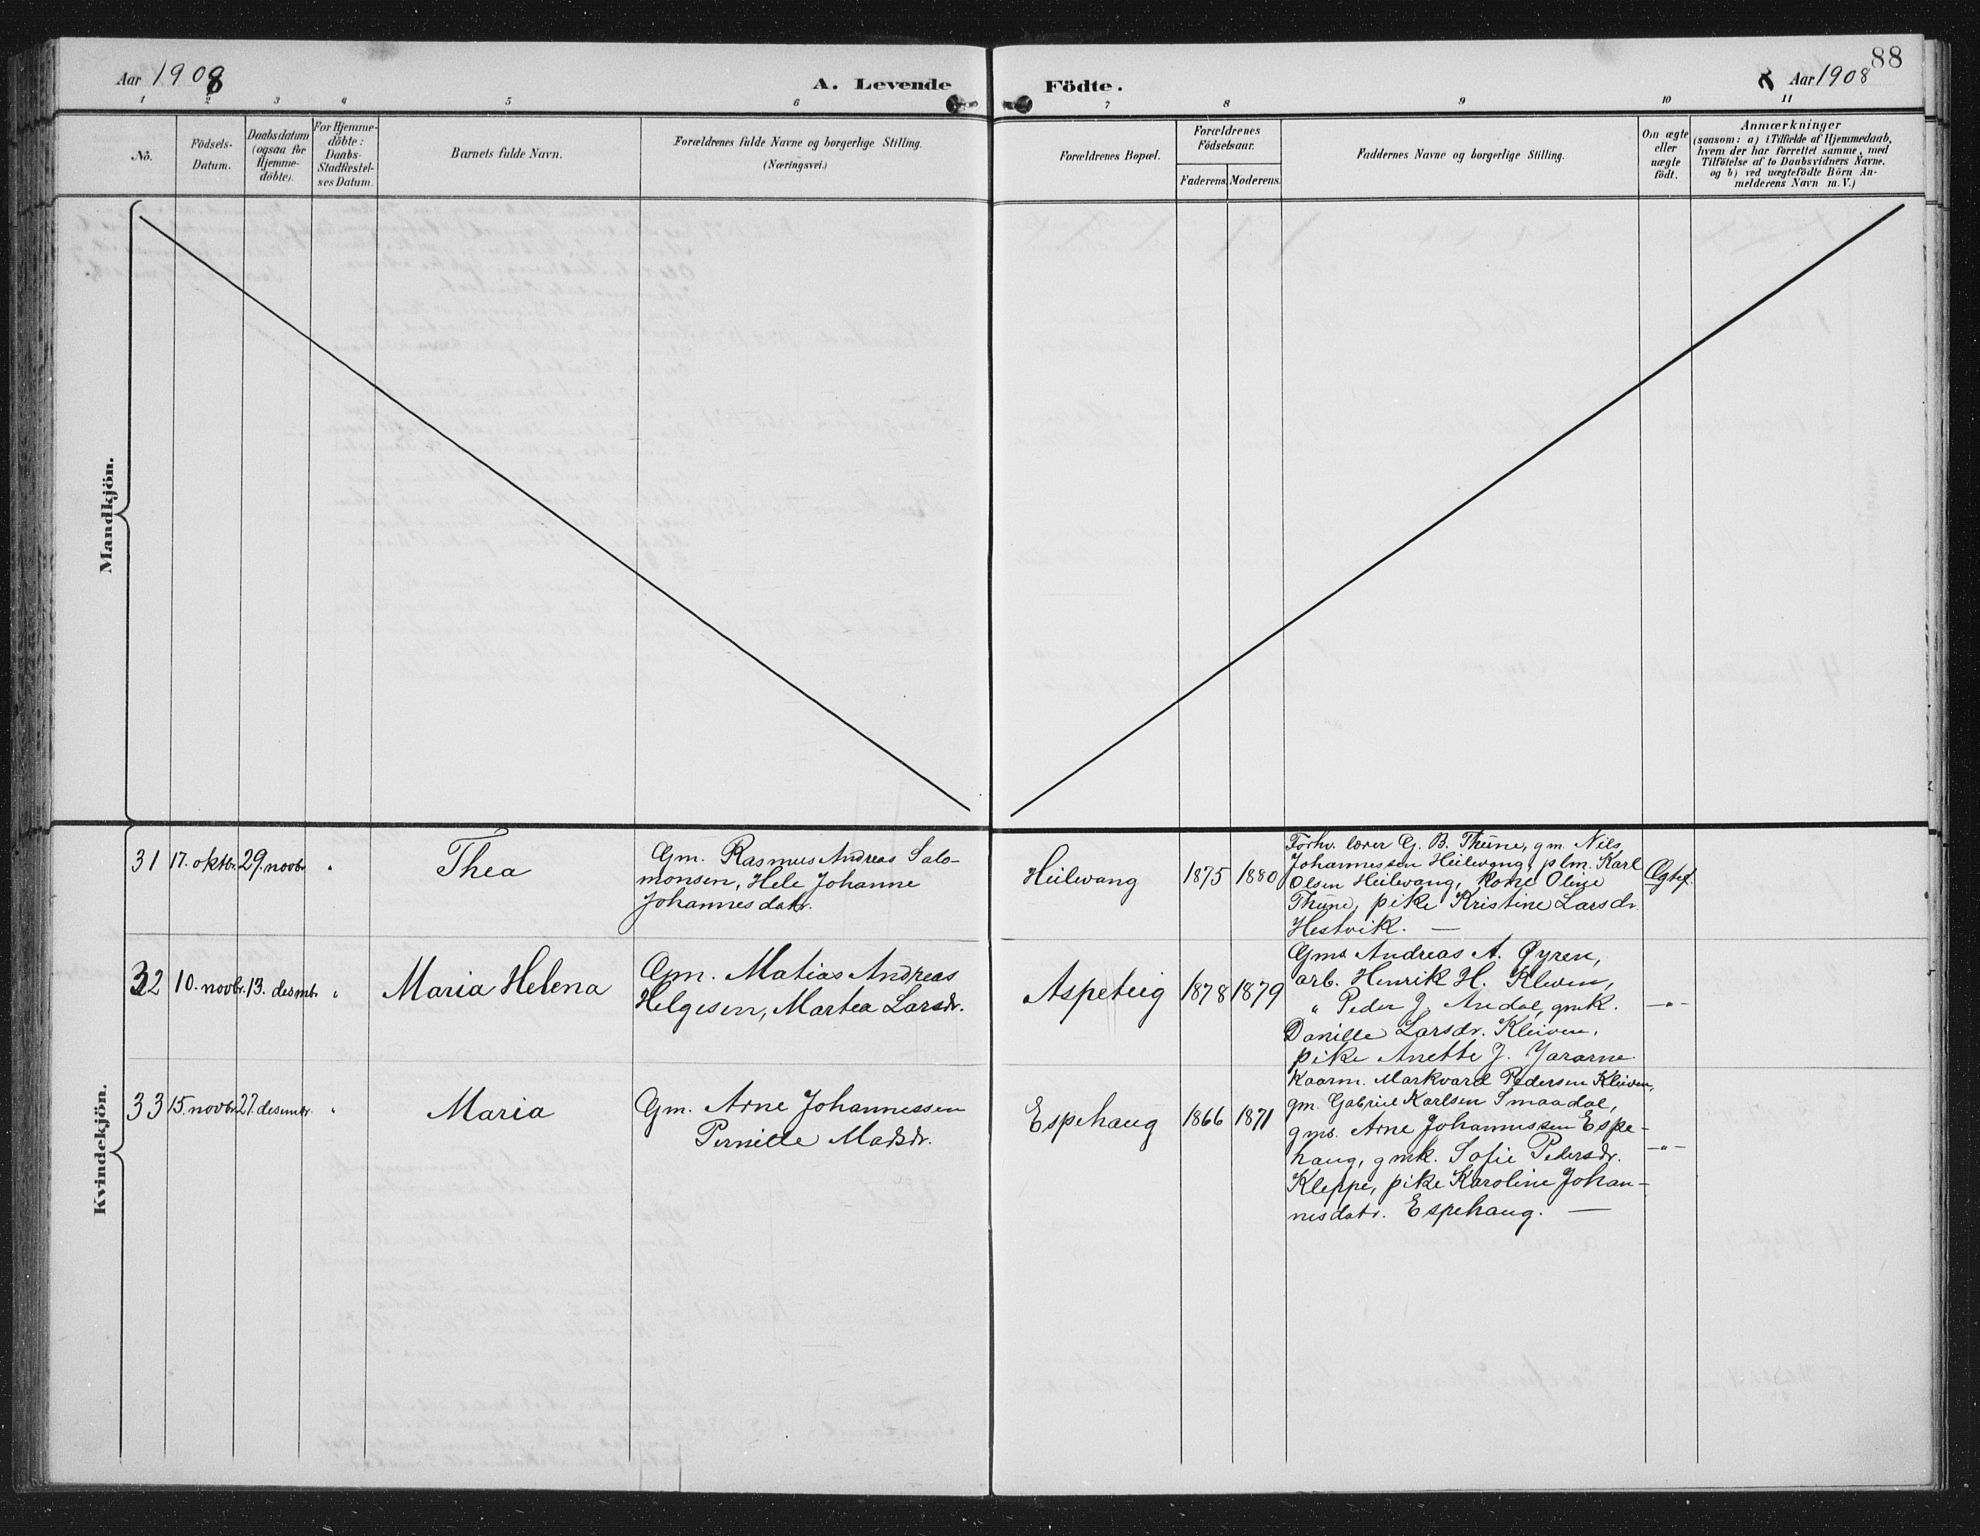 88
Aar 1908
A. Levende
Födte.
Aar 1908
1 2 3 4 5 6 7 8 9 10 11
No.
Födsels-
Datum.
Daabsdatum
(ogsaa for
Hjemme-
döbte).
For Hjemme-
döbte:
Daabs-
Stadfæstel-
ses Datum.
Barnets fulde Navn.
Forældrenes fulde Navne og borgerlige Stilling.
(Næringsvei.)
Forældrenes Bopæl.
Forældrenes
Födselsaar.
Faderens. Moderens.
Faddernes Navne og borgerlige Stilling.
Om ægte
eller
uægte
födt.
Anmærkninger
(saasom: a) i Tilfælde af Hjemmedaab,
hvem der har forrettet samme, med
Tilföielse af to Daabsvidners Navne.
og b) ved uægtefödte Börn An-
melderens Navn m. V.)
Mandkjön.
Kvindekjön.
31 17. oktbr. 29. novbr. "
Thea
Gm. Rasmus Andreas Salo-
monsen, Hele Johanne
Johannesdatr.
Heilevang
1875 1880
Forhv. lærer G. B. Thune, gm. Nils
Johannessen Heilevang, plm. Karl
Olsen Heilevang, kone Oline
Thune, pike Kristine Larsdr.
Hestvik. —
Ægtef.
32 10. novbr. 13. desmbr. "
Maria Helena
Gm. Matias Andreas
Helgesen, Martea Larsdr.
Aspeteig
1878 1879
Gms. Andreas A. Øyren,
arb. Henrik H. Kleiven,
" Peder J. Ardal, gmk.
Danille Larsdr. Kleiven,
pike Anette J. Yararne.
—"—
33 15. novbr. 27. desmbr. "
Maria
Gm. Arne Johannessen
Pernille Madsdr.
Espehaug
1866 1871
Kaarm. Markvard Pedersen Kleiven,
gm. Gabriel Karlsen Smaadal,
gms. Arne Johannessen Espe-
haug, gmk. Sofie Pedersdr.
Kleppe, pike Karoline Johan-
nesdatr. Espehaug. —
—"—